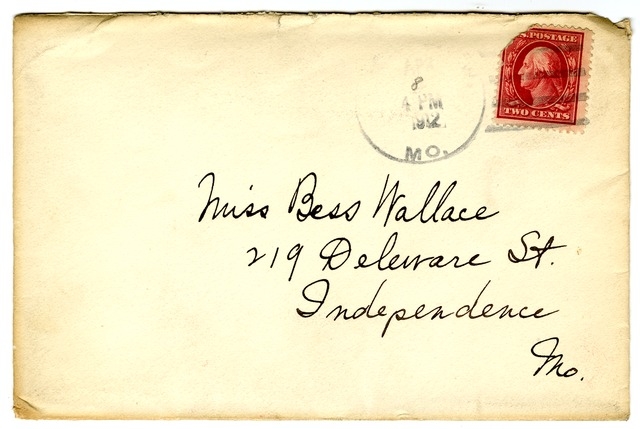 U.S. POSTAGE
TWO CENTS
APR
8
4 PM
1912
MO.
Miss Bess Wallace
219 Deleware St.
Independence
Mo.